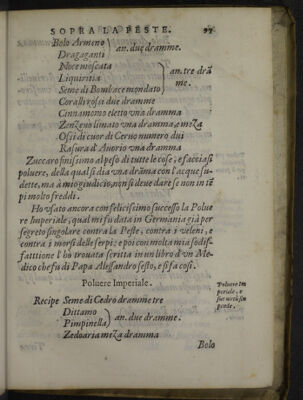 SOPRA LA PESTE. 97
Bolo Armeno
Dragaganti } an. due dramme.
Noce moscata
Liquiritia } an. tre drã
Seme di Bombace mondato me.
Coralli rossi due dramme
Cinnamomo eletto vna dramma
Zenzeno limato vna dramma, e meza
Ossi di cuor di Ceruo numero dui
Rasura d'Auorio vna dramma
Zuccaro finissimo al peso di tutte le cose, e facciasi
poluere, della qual si dia vna drãma con l'acque su-
dette, ma à mio giudicio, non si deue dare se non in tẽ
pi molto freddi.
Ho vsato ancora con felicissimo successo la Polue
re Imperiale, qual mi fu data in Germania già per
segreto singolare contra la Peste, contra i veleni, e
contra i morsi delle serpi; e poi con molta mia sodis-
fattione l'hò trouata scritta in un libro d'vn Me-
dico che fu di Papa Alessandro sesto, e si fa così.
Poluere Imperiale.
Poluere Im
periale, e
sue virtù in
peste.
Recipe Seme di Cedro dramme tre
Dittamo
Pimpinella } an. due dramme.
Zedoaria meza dramma
Bolo